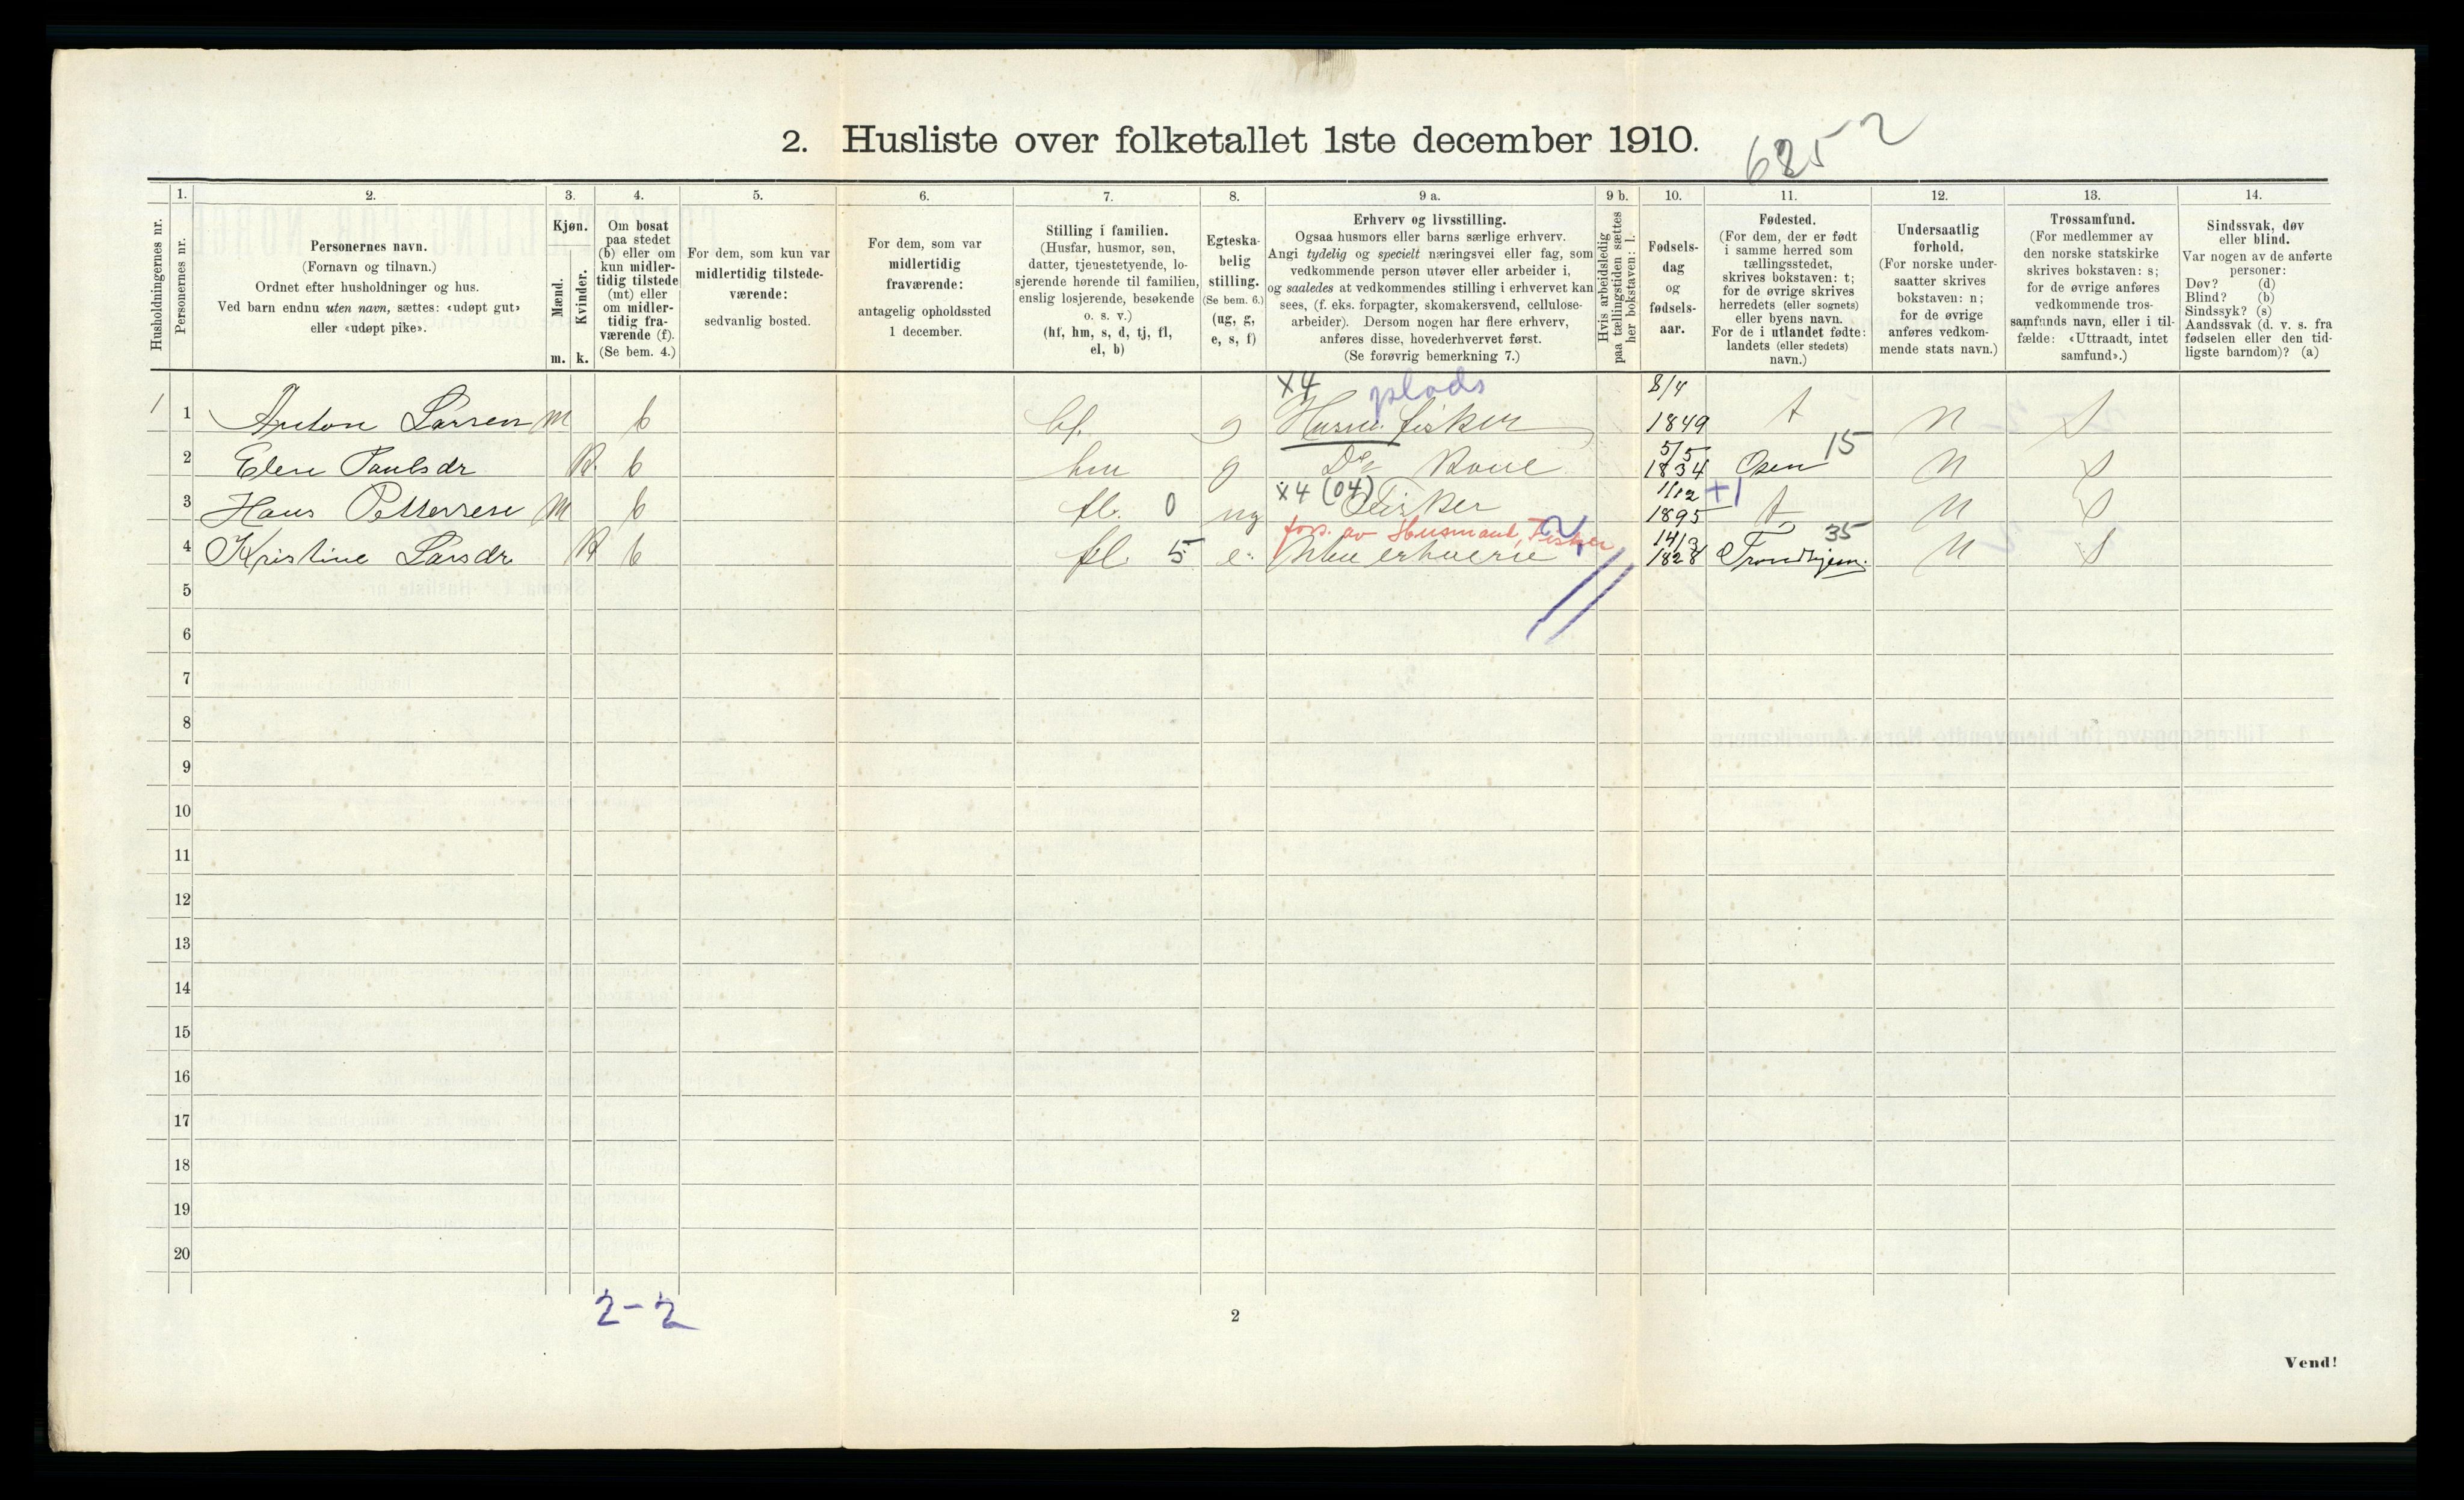 2. Husliste over folketallet 1ste december 1910.
6252
Husholdningernes nr.
1. Personernes nr.
2. Personernes navn.
(Fornavn og tilnavn.)
Ordnet efter husholdninger og hus.
Ved barn endnu uten navn, sættes: «udøpt gut»
eller «udøpt pike».
3. Kjøn.
Mænd. Kvinder.
m. k.
4. Om bosat
paa stedet
(b) eller om
kun midler-
tidig tilstede
(mt) eller
om midler-
tidig fra-
værende (f).
(Se bem. 4.)
5. For dem, som kun var
midlertidig tilstede-
værende:
sedvanlig bosted.
6. For dem, som var
midlertidig
fraværende:
antagelig opholdssted
1 december.
7. Stilling i familien.
(Husfar, husmor, søn,
datter, tjenestetyende, lo-
sjerende hørende til familien,
enslig losjerende, besøkende
o. s. v.)
(hf, hm, s, d, tj, fl,
el, b)
8. Egteska-
belig
stilling.
(Se bem. 6.)
(ug, g,
e, s, f)
9 a. Erhverv og livsstilling.
Ogsaa husmors eller barns særlige erhverv.
Angi tydelig og specielt næringsvei eller fag, som
vedkommende person utøver eller arbeider i,
og saaledes at vedkommendes stilling i erhvervet kan
sees, (f. eks. forpagter, skomakersvend, cellulose-
arbeider). Dersom nogen har flere erhverv,
anføres disse, hovederhvervet først.
(Se forøvrig bemerkning 7.)
9 b. Hvis arbeidsledig
paa tællingstiden sættes
her bokstaven: l.
10. Fødsels-
dag
og
fødsels-
aar.
11. Fødested.
(For dem, der er født
i samme herred som
tællingsstedet,
skrives bokstaven: t;
for de øvrige skrives
herredets (eller sognets)
eller byens navn.
For de i utlandet fødte:
landets (eller stedets)
navn.)
12. Undersaatlig
forhold.
(For norske under-
saatter skrives
bokstaven: n;
for de øvrige
anføres vedkom-
mende stats navn.)
13. Trossamfund.
(For medlemmer av
den norske statskirke
skrives bokstaven: s;
for de øvrige anføres
vedkommende tros-
samfunds navn, eller i til-
fælde: «Uttraadt, intet
samfund».)
14. Sindssvak, døv
eller blind.
Var nogen av de anførte
personer:
Døv? (d)
Blind? (b)
Sindssyk? (s)
Aandssvak (d. v. s. fra
fødselen eller den tid-
ligste barndom)? (a)
X4 plads 8/4
1 1 Anton Larsen m b hf. g Husm. fisker 1849 t n s
5/5 15
2 Elen Paulsdr k b hm g Do Kone 1834 Osen n s
X4 (04) 1/12 +1
3 Hans Pettersen m b fl. 0 ug Fisker 1895 t n s
fors. av Husmand, Fisker 14/3 35
4 Kristine Larsdr k b fl. 5 e. Uten erhverv 1828 Trondhjem. n s
5
6
7
8
9
10
11
12
13
14
15
16
17
18
19
20
2-2
2
Vend!